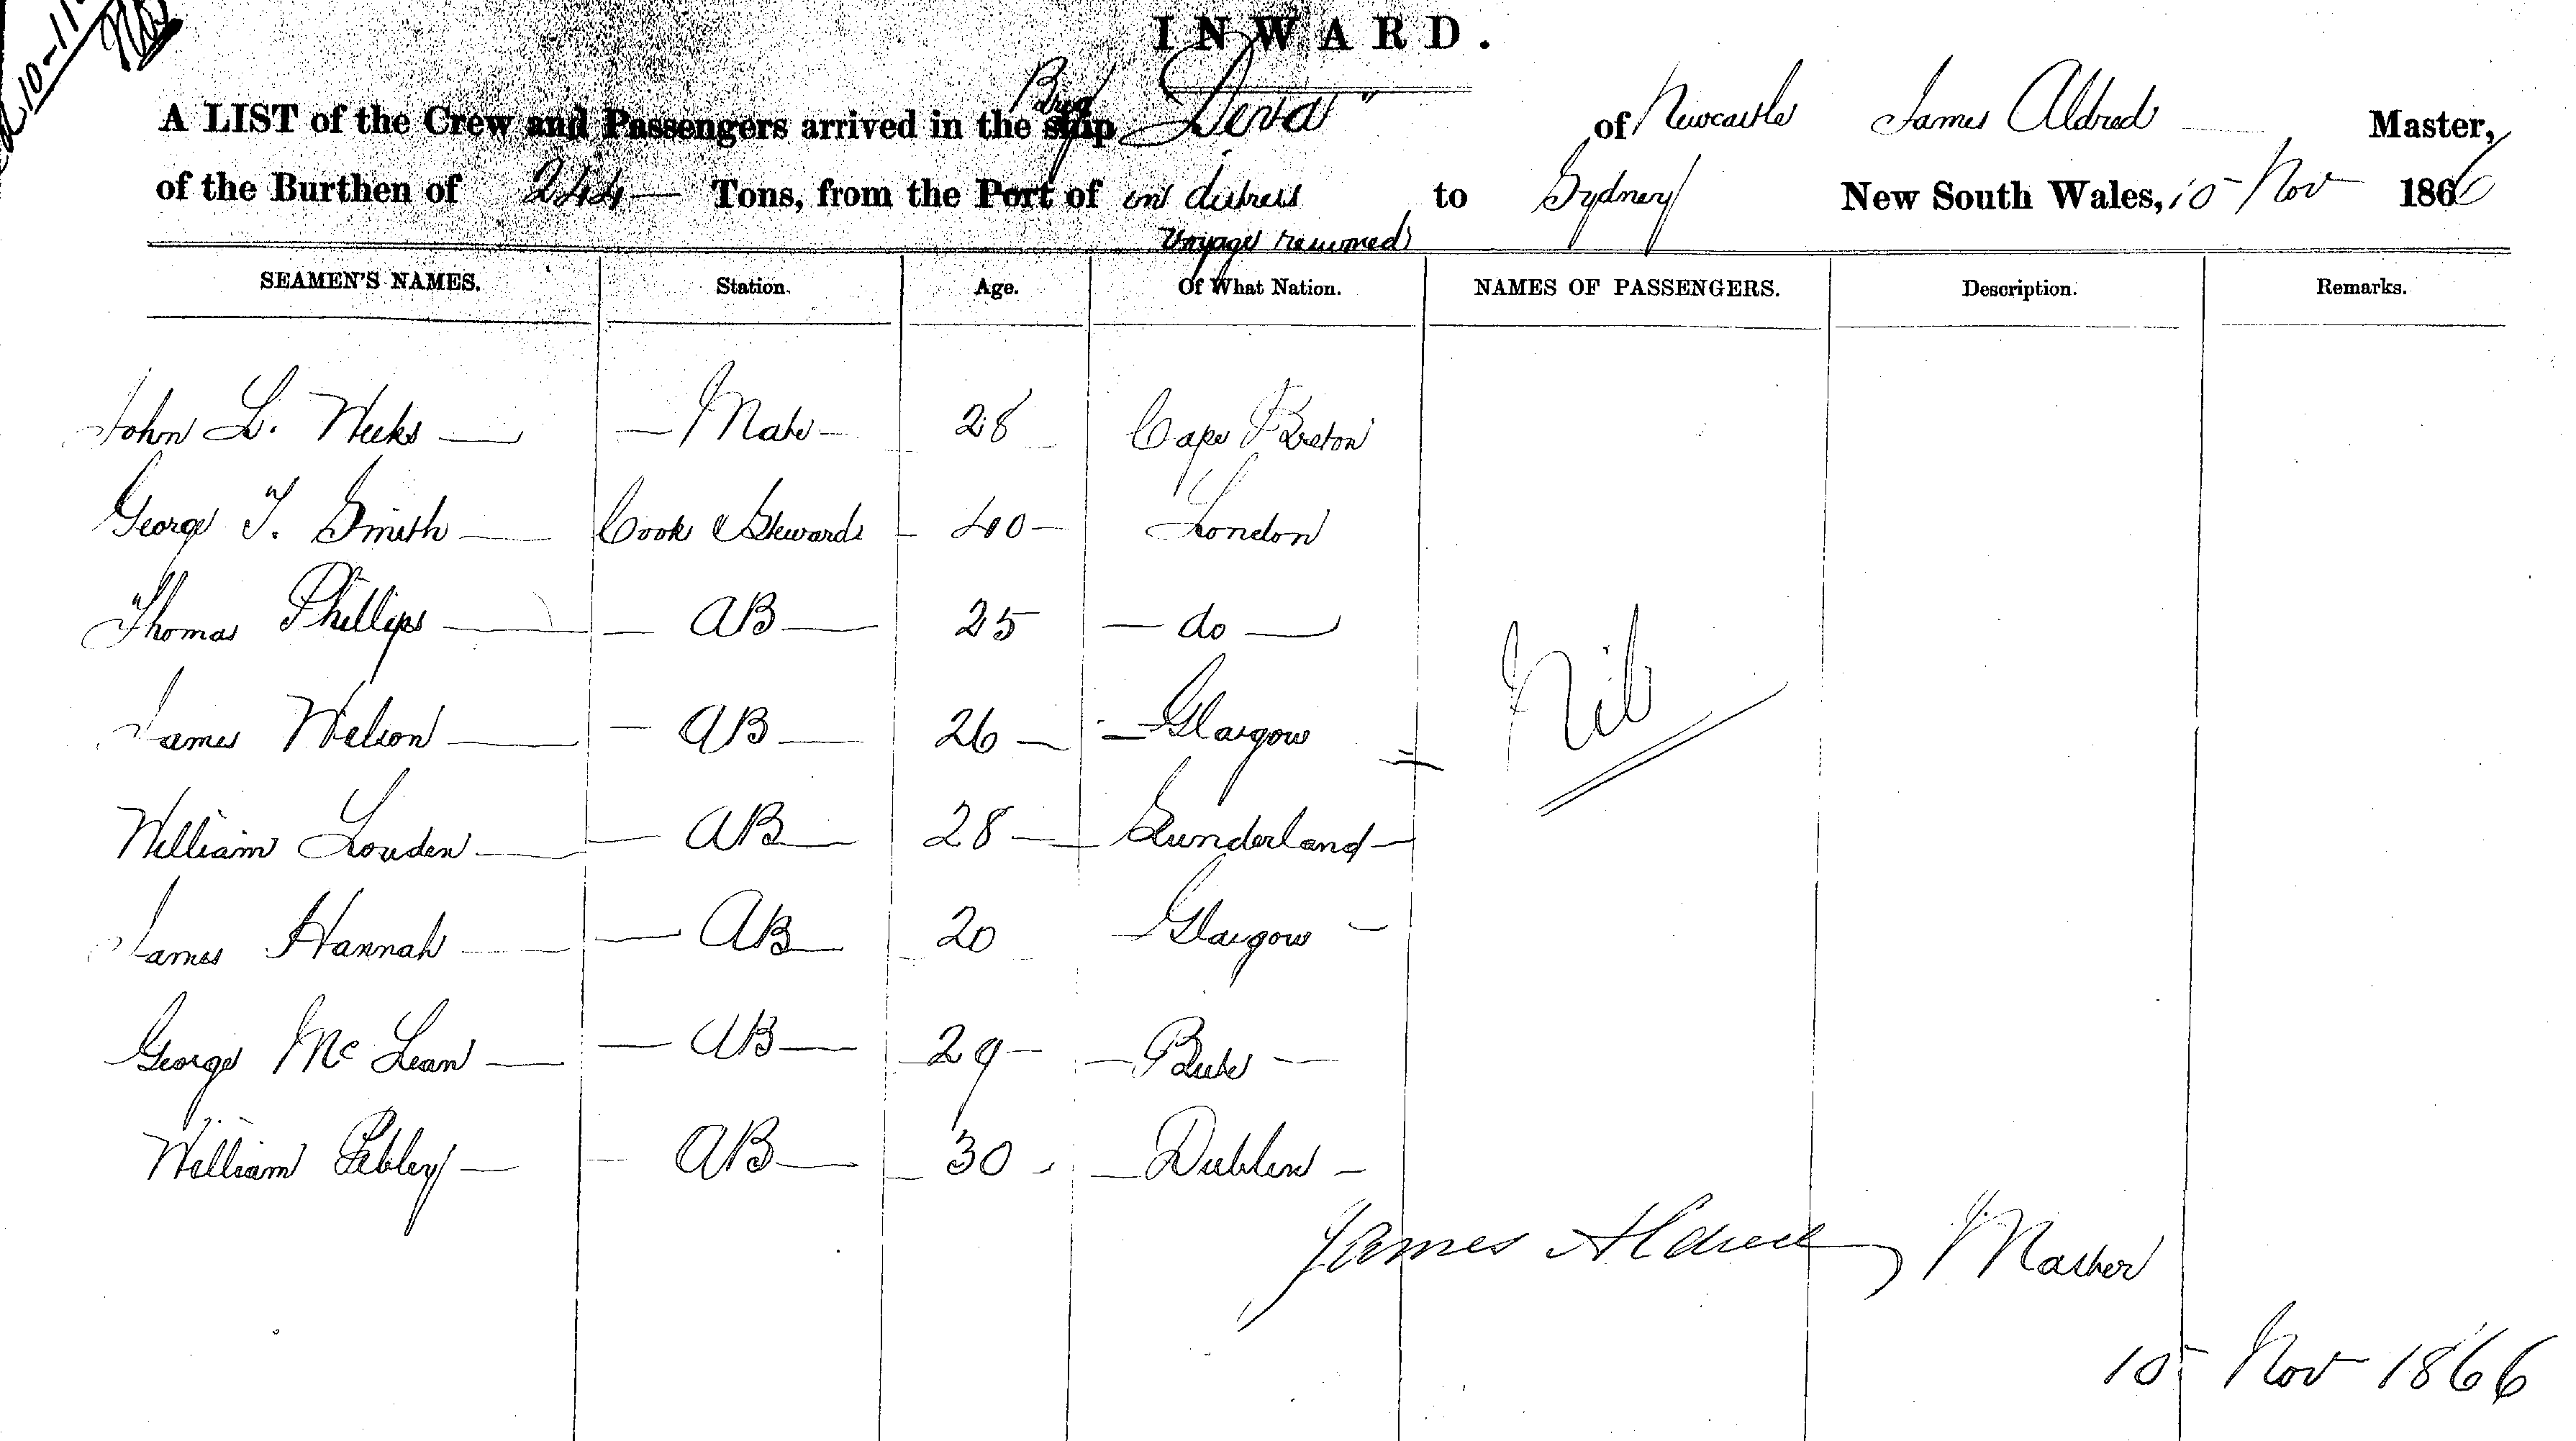 10-11
INWARD.
A LIST of the Crew and Passengers arrived in the ship Brig "Deva" of Newcastle James Aldred Master,
of the Burthen of 244 Tons, from the Port of in distress to Sydney New South Wales, 10 Nov 1866
Voyage resumed
SEAMEN'S NAMES. Station. Age. Of What Nation. NAMES OF PASSENGERS. Description. Remarks.
John L. Weeks Mate 28 Cape Breton
George T. Smith Cook & Steward 40 London
Thomas Phillips AB 25 do
James Wilson AB 26 Glasgow Nil
William Louden AB 28 Sunderland
James Hannah AB 20 Glasgow
George Mc Lean AB 29 Bute
William Pebley AB 30 Dublin
James Aldred Master
10 Nov 1866